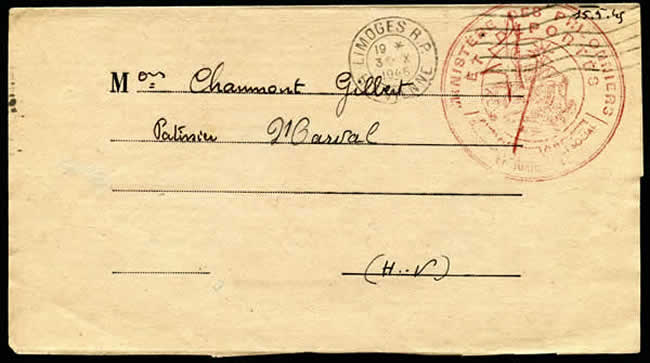 15.5.45
LIMOGES R.P.
19 *
3 X
1945
VIENNE
MINISTÈRE DES PRISONNIERS
ET DÉPORTÉS
SOCIAL
Mon Chaumont Gilbert
Patissier Marval
(H..V)